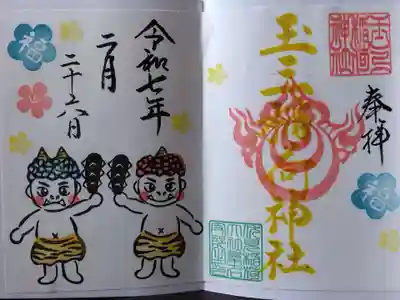 奉拝
福
玉三稲荷神社
令和七年
二月
二十六日
福